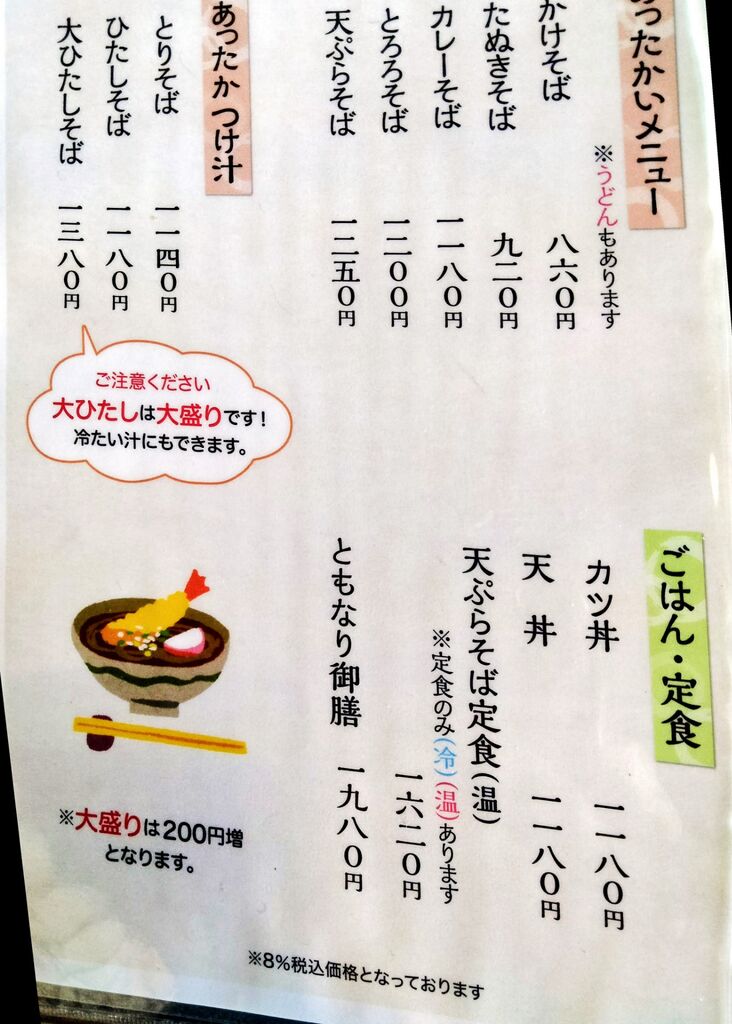 あったかいメニュー
※うどんもあります
かけそば 八六〇円
たぬきそば 九二〇円
カレーそば 一一八〇円
とろろそば 一二〇〇円
天ぷらそば 一二五〇円
あったかつけ汁
とりそば 一一四〇円
ひたしそば 一一八〇円
大ひたしそば 一三八〇円
ご注意ください
大ひたしは大盛りです!
冷たい汁にもできます。
ごはん・定食
カツ丼 一一八〇円
天丼 一一八〇円
天ぷらそば定食(温)
※定食のみ(冷)(温)あります
一六二〇円
ともなり御膳 一九八〇円
※大盛りは200円増
となります。
※8%税込価格となっております